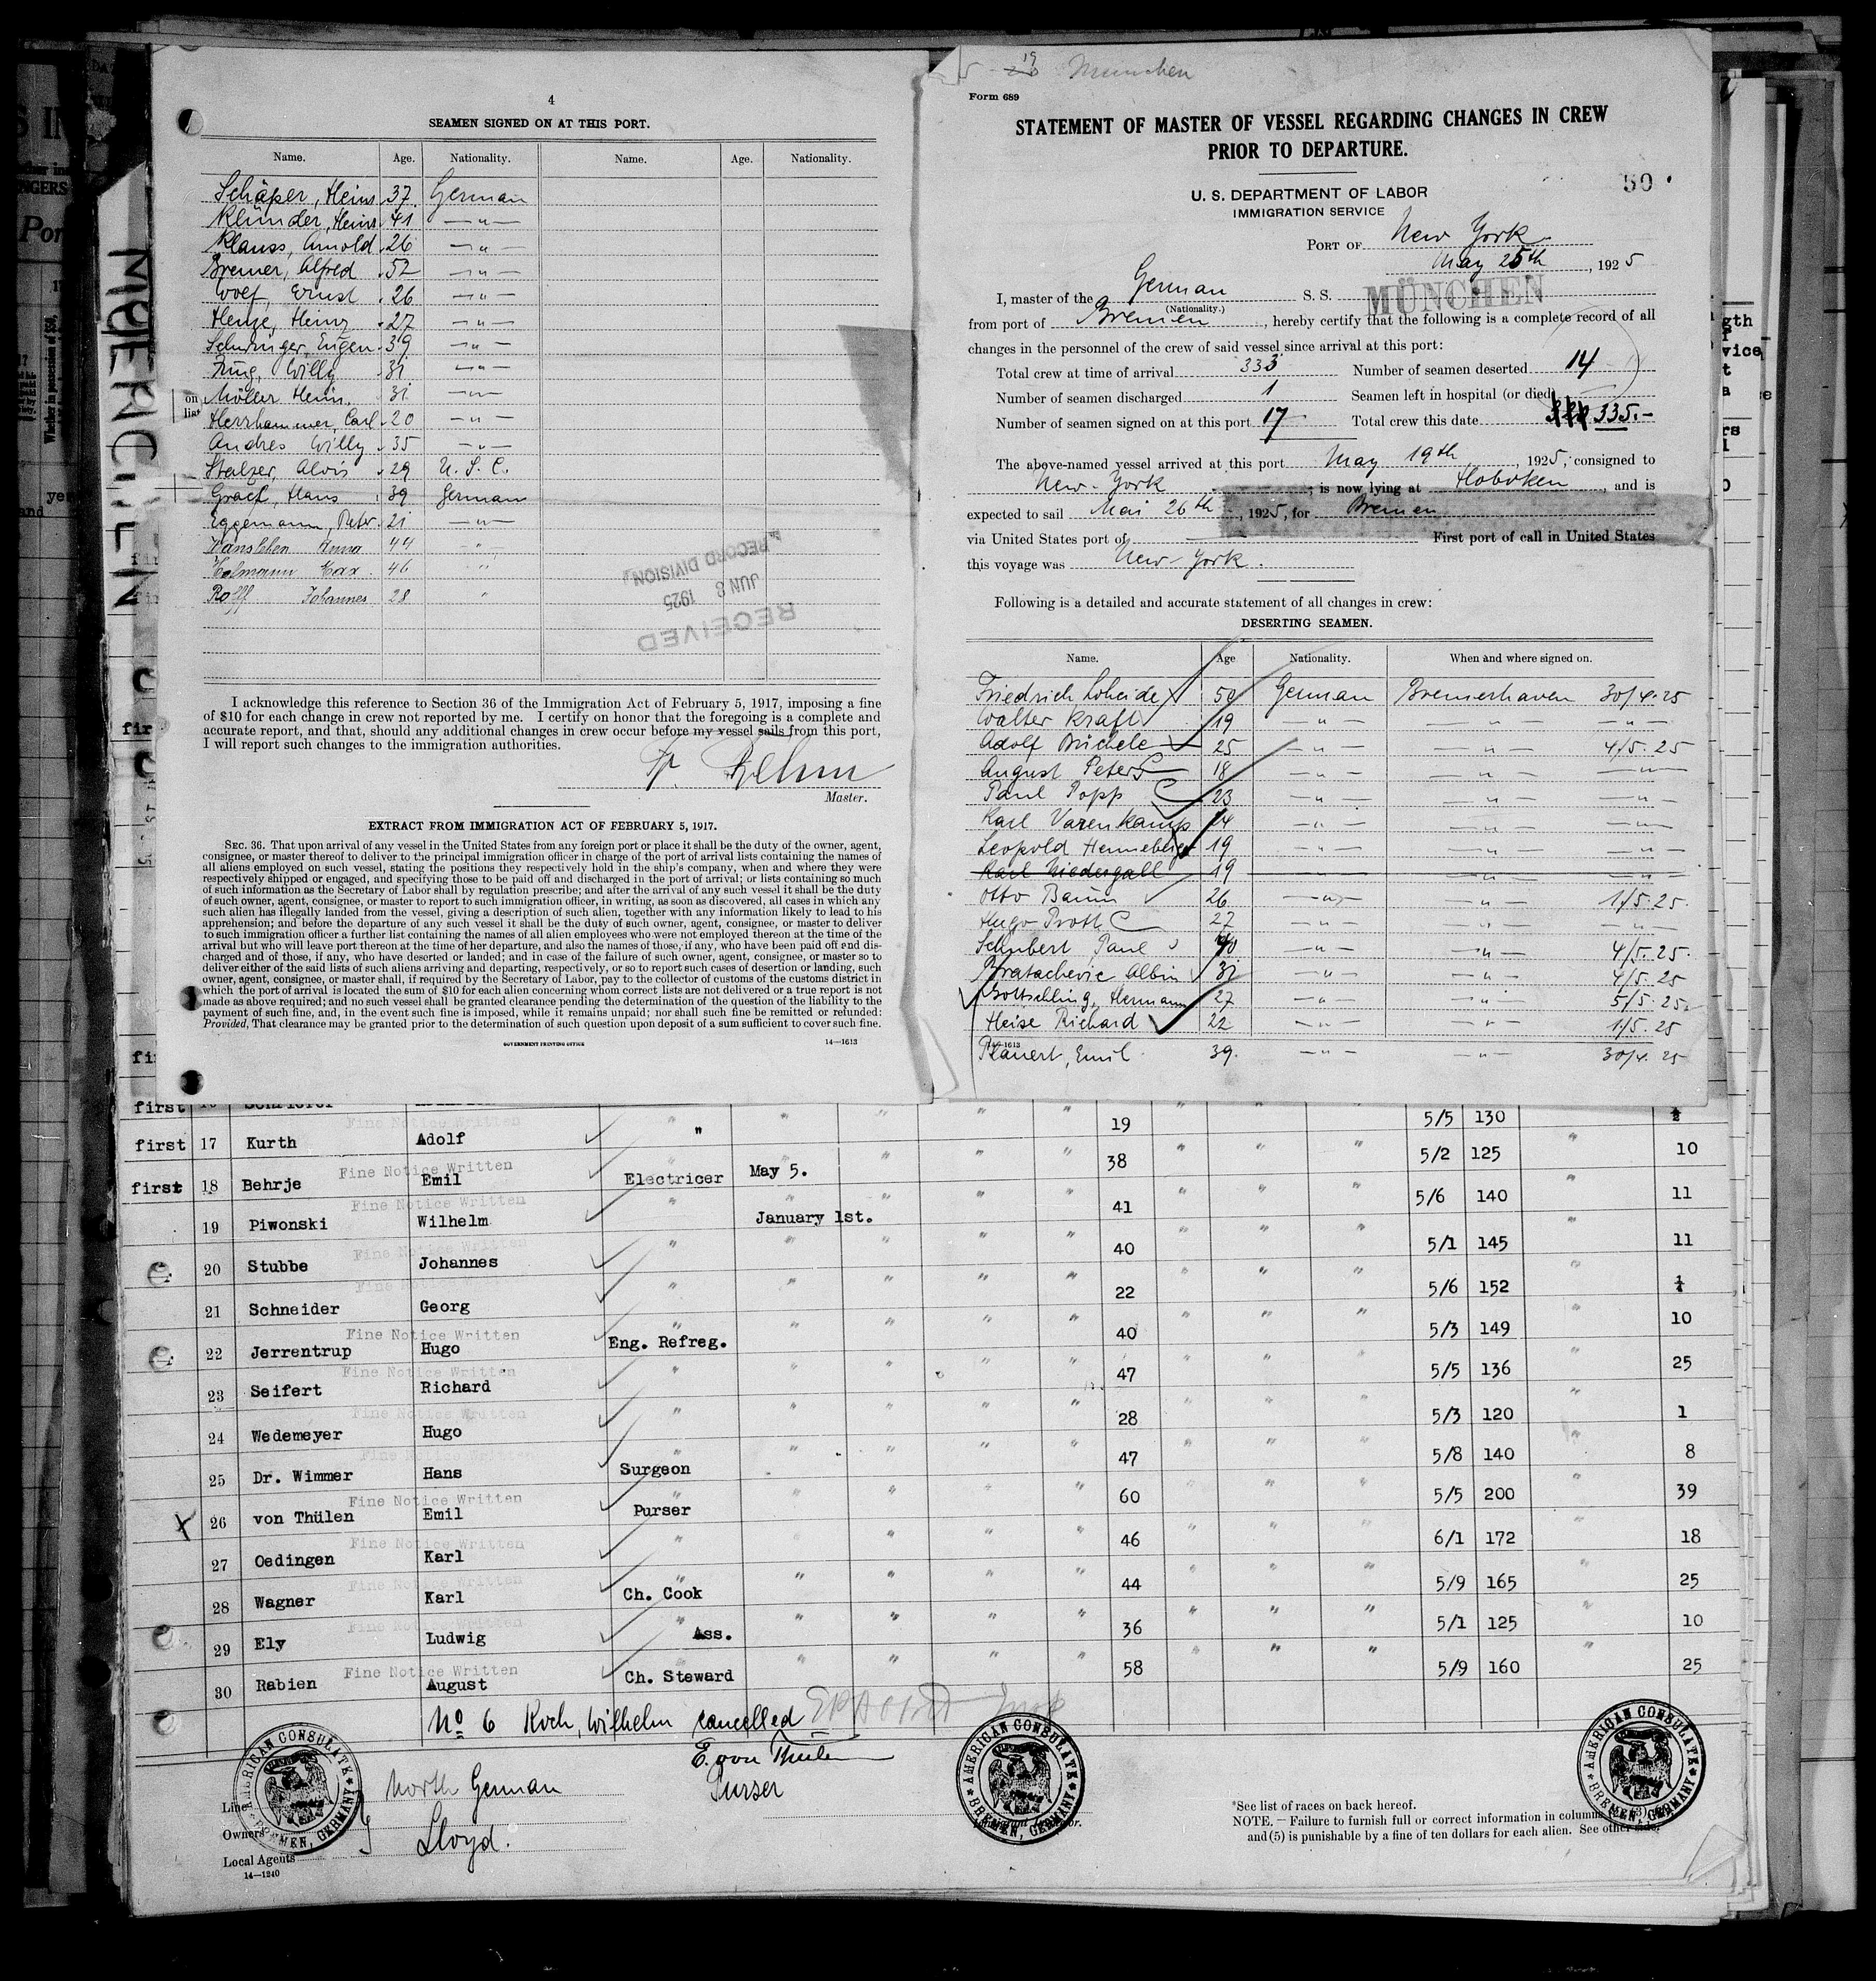 4
SEAMEN SIGNED ON AT THIS PORT.
Name. Age. Nationality. Name. Age. Nationality.
Schäper, Heinr. 37. German
Klünder, Heinr. 41 — " —
Klauss, Arnold 26 — " —
Bremer, Alfred 52 — " —
Wolf, Ernst 26 — " —
Henze, Heinz 27 — " —
Schwinger, Eugen 39 — " —
Krug, Willy 31 — " —
on list
Möller Heinr. 31 — " —
Herrhammer, Carl 20 — " —
Andres Willy 35 — " —
Stalzer, Alois 29 U. S. C.
Graef, Hans 39 German
Eggemann, Peter 21 — " —
Hansleben Anna 44 "
Holmann Max 46 "
Rolff Johannes 28 "
RECORD DIVISION
JUN 8 1925
RECEIVED
I acknowledge this reference to Section 36 of the Immigration Act of February 5, 1917, imposing a fine
of $10 for each change in crew not reported by me. I certify on honor that the foregoing is a complete and
accurate report, and that, should any additional changes in crew occur before my vessel sails from this port,
I will report such changes to the immigration authorities.
Master.
EXTRACT FROM IMMIGRATION ACT OF FEBRUARY 5, 1917.
SEC. 36. That upon arrival of any vessel in the United States from any foreign port or place it shall be the duty of the owner, agent,
consignee, or master thereof to deliver to the principal immigration officer in charge of the port of arrival lists containing the names of
all aliens employed on such vessel, stating the positions they respectively hold in the ship's company, when and where they were
respectively shipped or engaged, and specifying those to be paid off and discharged in the port of arrival; or lists containing so much
of such information as the Secretary of Labor shall by regulation prescribe; and after the arrival of any such vessel it shall be the duty
of such owner, agent, consignee, or master to report to such immigration officer, in writing, as soon as discovered, all cases in which any
such alien has illegally landed from the vessel, giving a description of such alien, together with any information likely to lead to his
apprehension; and before the departure of any such vessel it shall be the duty of such owner, agent, consignee, or master to deliver
to such immigration officer a further list containing the names of all alien employees who were not employed thereon at the time of the
arrival but who will leave port thereon at the time of her departure, and also the names of those, if any, who have been paid off and dis-
charged and of those, if any, who have deserted or landed; and in case of the failure of such owner, agent, consignee, or master so to
deliver either of the said lists of such aliens arriving and departing, respectively, or so to report such cases of desertion or landing, such
owner, agent, consignee, or master shall, if required by the Secretary of Labor, pay to the collector of customs of the customs district in
which the port of arrival is located the sum of $10 for each alien concerning whom correct lists are not delivered or a true report is not
made as above required; and no such vessel shall be granted clearance pending the determination of the question of the liability to the
payment of such fine, and, in the event such fine is imposed, while it remains unpaid; nor shall such fine be remitted or refunded:
Provided, That clearance may be granted prior to the determination of such question upon deposit of a sum sufficient to cover such fine.
GOVERNMENT PRINTING OFFICE 14—1613
19 München
Form 689
STATEMENT OF MASTER OF VESSEL REGARDING CHANGES IN CREW
PRIOR TO DEPARTURE.
50
U. S. DEPARTMENT OF LABOR
IMMIGRATION SERVICE
PORT OF New York
May 25th, 1925
I, master of the German S. S. MÜNCHEN
(Nationality.)
from port of Bremen, hereby certify that the following is a complete record of all
changes in the personnel of the crew of said vessel since arrival at this port:
Total crew at time of arrival 333 Number of seamen deserted 14
Number of seamen discharged 1 Seamen left in hospital (or died)
Number of seamen signed on at this port 17 Total crew this date 335.-
The above-named vessel arrived at this port May 19th, 1925, consigned to
New-York; is now lying at Hoboken, and is
expected to sail Mai 26th, 1925, for Bremen
via United States port of — First port of call in United States
this voyage was New-York.
Following is a detailed and accurate statement of all changes in crew:
DESERTING SEAMEN.
Name. Age Nationality. When and where signed on.
Friedrich Loheide 50 German Bremerhaven 30/4.25
Walter Kraft 19 — " — — " — — " —
Adolf Büchele 25 — " — — " — 4/5.25
August Peters 18 — " — — " — — " —
Paul Popp 23 — " — — " — — " —
Karl Varenkamp 24 — " — — " — — " —
Leopold Henneberger 19 — " — — " — — " —
Karl Niedergall 19
Otto Baum 26 — " — " 1/5.25.
Hugo Proth 27 — " — — " — — " —
Schubert, Paul 40 — " — — " — 4/5.25.
Bratachevic Albin 31 — " — " 4/5.25
Bottschling, Hermann 27 — " — " 5/5.25
Heise Richard 22 — " — — " — 1/5.25
14—1613
Planert, Emil 39. — " — — " — 30/4.25
first 5/5 130
first 17 Kurth Adolf " 19 5/2 125 10
first 18 Behrje Fine Notice Written Emil Electricer May 5. 38 5/6 140 11
19 Piwonski Fine Notice Written Wilhelm " January 1st. 41 5/1 145 11
20 Stubbe Fine Notice Written Johannes " 40 5/6 152
21 Schneider Georg " 22 5/3 149 10
22 Jerrentrup Fine Notice Written Hugo Eng. Refreg. 40 5/5 136 25
23 Seifert Fine Notice Written Richard " 47 5/3 120 1
24 Wedemeyer Fine Notice Written Hugo " 28 5/8 140 8
25 Dr. Wimmer Hans Surgeon 47 5/5 200 39
X 26 von Thülen Fine Notice Written Emil Purser 60 6/1 172 18
27 Oedingen Fine Notice Written Karl " 46 5/9 165 25
28 Wagner Karl Ch. Cook 44 5/1 125 10
29 Ely Ludwig " Ass. 36 5/9 160 25
30 Rabien Fine Notice Written August Ch. Steward 58
No 6 Koch, Wilhelm cancelled
E. von Thülen
Purser
AMERICAN CONSULATE BREMEN, GERMANY
AMERICAN CONSULATE BREMEN, GERMANY
AMERICAN CONSULATE BREMEN, GERMANY
Line North German
Owners
Lloyd.
Local Agents
14—1240
*See list of races on back hereof.
NOTE. — Failure to furnish full or correct information in columns (3)
and (5) is punishable by a fine of ten dollars for each alien. See other side.